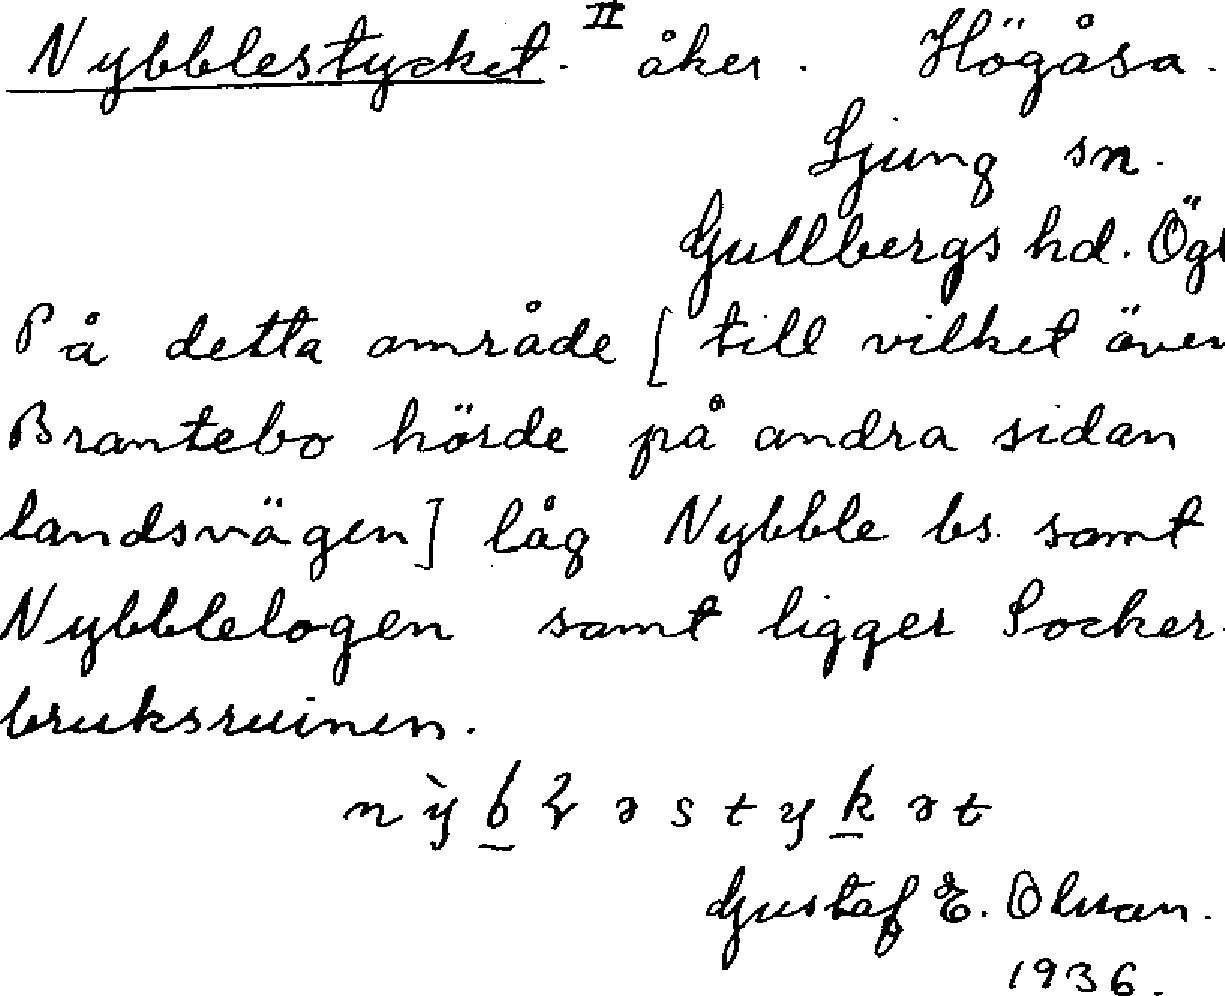 Nybblestycket. II åker. Högåsa.
Ljung sn.
Gullbergs hd. Ögl
På detta område [till vilket även
Brantebo hörde på andra sidan
landsvägen] låg Nybble bs. samt
Nybblelogen samt ligger Socker-
bruksruinen.
Gustaf E. Olsson.
1936.